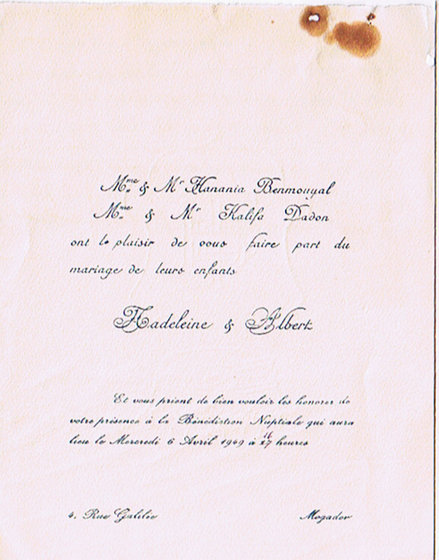 Mme & Mr Hanania Benmouyal
Mme & Mr Kalifa Dadon
ont le plaisir de vous faire part du
mariage de leurs enfants
Madeleine & Albert
Et vous prient de bien vouloir les honorer de
votre présence à la Bénédiction Nuptiale qui aura
lieu le Mercredi 6 Avril 1949 à heures
4, Rue Galilée
Mogador